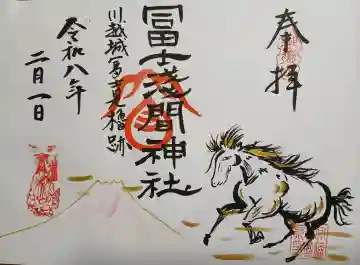 奉拝
冨士浅間神社
川越城冨士見櫓跡
令和八年
二月一日